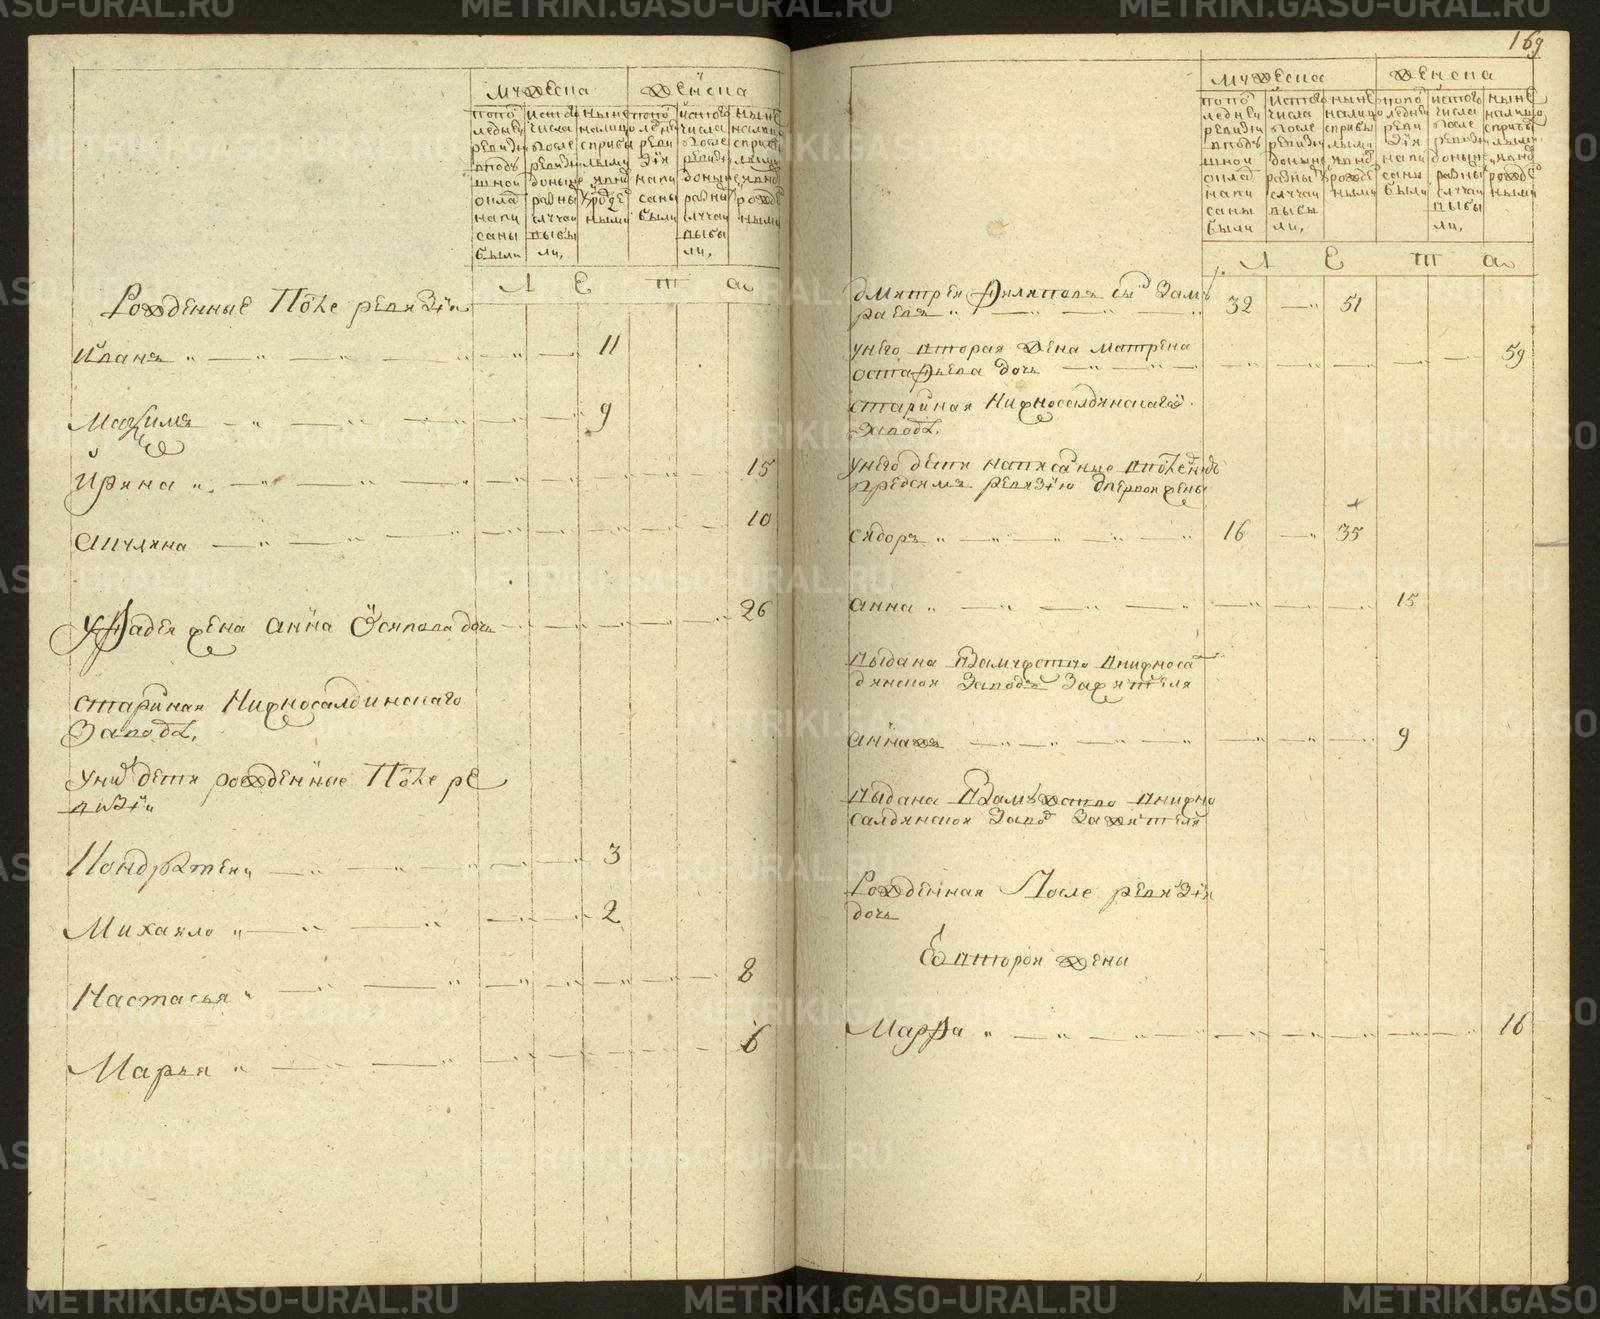 мужеска
женска
попо
ледней
ревизии
вподъ
шной
онла
напи
саны
были
ис того
числа
после
ревизии
доныне
разны
случаи
выбы
ли,
ныне
налицо
сприбы
лыми
явно
рожде
ными
попо
ледней
реви
зіи
напи
саны
были
ис того
числа
после
ревизии
доныне
разны
случаи
выбы
ли,
ныне
налицо
сприбы
лыми
явно
рожде
ными
Л Е Т а
Рожденные После ревизіи
Иванъ 11
Максимъ 9
Ирина 15
Аикулина 10
У Фадея жена Анна Осипова дочь 26
старинная Нижносалдинскаго
Завода.
У них дети рожденные После ре
визіи
Кондратей 3
Михаило 2
Настасья 8
Марья 6
169
мужеска
женска
попо
ледней
ревизии
вподъ
шной
онла
напи
саны
были
ис того
числа
после
ревизии
доныне
разны
случаи
выбы
ли,
ныне
налицо
сприбы
лыми
явно
рожде
ными
попо
ледней
реви
зіи
напи
саны
были
ис того
числа
после
ревизии
доныне
разны
случаи
выбы
ли,
ныне
налицо
сприбы
лыми
явно
рожде
ными
Л Е Т а
Дмитрей Филиповъ сынъ Замъ
раевъ 32 51
У него вторая жена Матрена
Остафьева дочь 59
старинная Нижносалдинскаго
Завода.
У него дети написаные
пред симъ ревизію с первой жены
Сидоръ 16 35
Анна 15
выдана Взамужство внижноса
динской Заводъ За жителя
Анна жъ 9
выдана Взамужство внижно
салдинской Завод За жителя
Рожденная После ревизіи
дочь
С второй жены
Марфа 16
METRIKI.GASO-URAL.RU